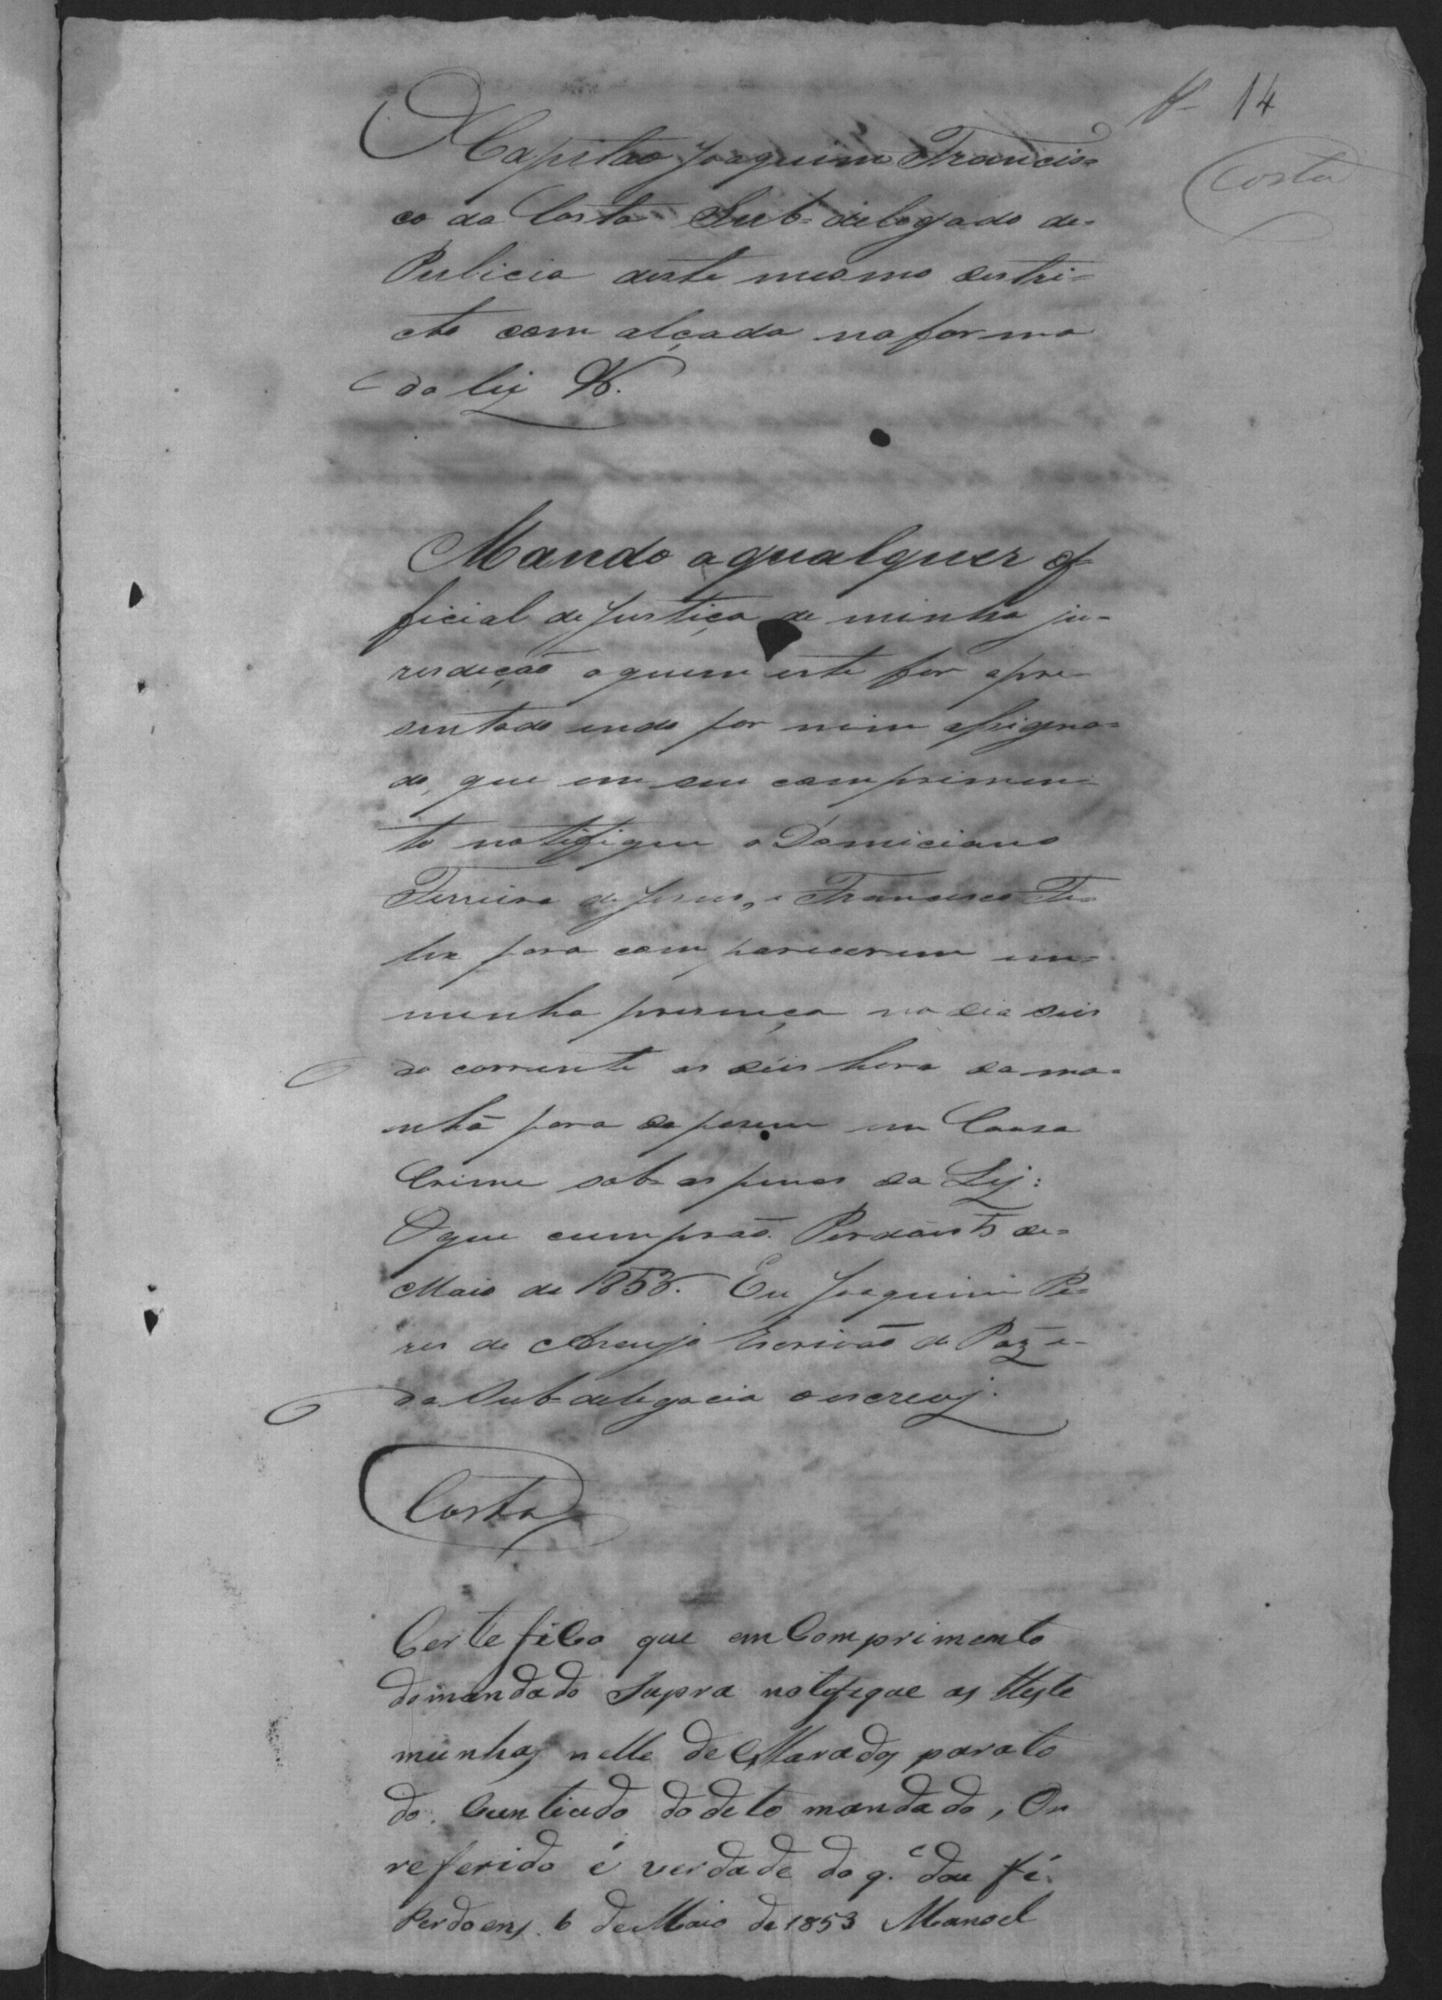 fl 14
Costa
O Capitão Joaquim Francis=
co da Costa Sub-delegado de=
Pulicia deste mesmo destri=
cto com alçada na forma
da lei &.
Mando a qualquer of
ficial de justiça de minha ju-
resdeção a quem este for apre-
sentado endo por mim assigna=
do, que em seu comprimen-
to notifique a Domiciano
Ferreira de Jesus, e Francisco
para comparecerem em=
minha presença no dia seis
do corrente as deis hora da ma=
nhã para deporem em Causa
Crime sob as penas da Ley:
O que cumprão. Perdões 5 de=
Maio de 1853. Eu Joaquim Pe=
res de Araujo Escrivão de Paz e-
da Sub-delegacia o escrevy.
Costa
Certefico que em Comprimento
do mandado Supra notefique as teste
munhas nelle declaradas para to
do Contiudo do deto mandado, Ou
referido é verdade do q.^e dou fé.
Perdoens 6 de Maio de 1853 Manoel